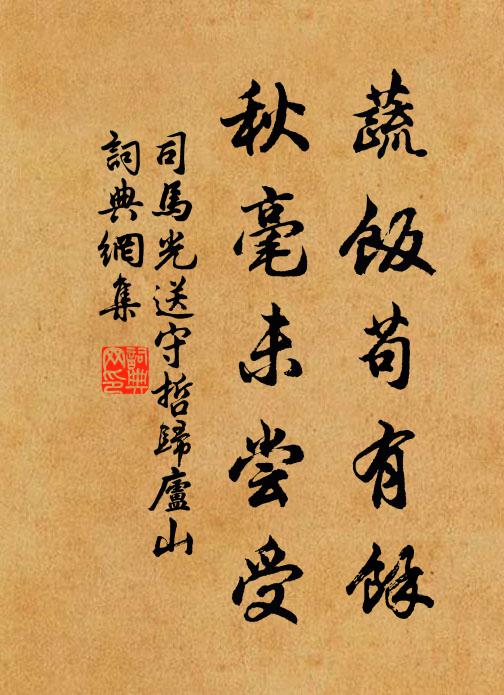 蔬飯苟有餘
秋毫未尝受
司馬光送守哲歸廬山
詞典網集
詞典
网印